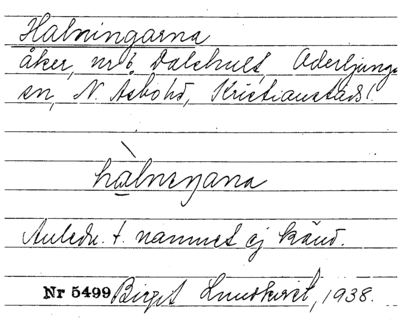 Halningarna
åker, nr 6 Dalshult, Oderljunga
sn, N. Åsbo hd, Kristianstads l.
hàlneŋana
Anledn. t. namnet ej känd.
Nr 5499 Birgit Lundkvist, 1938.